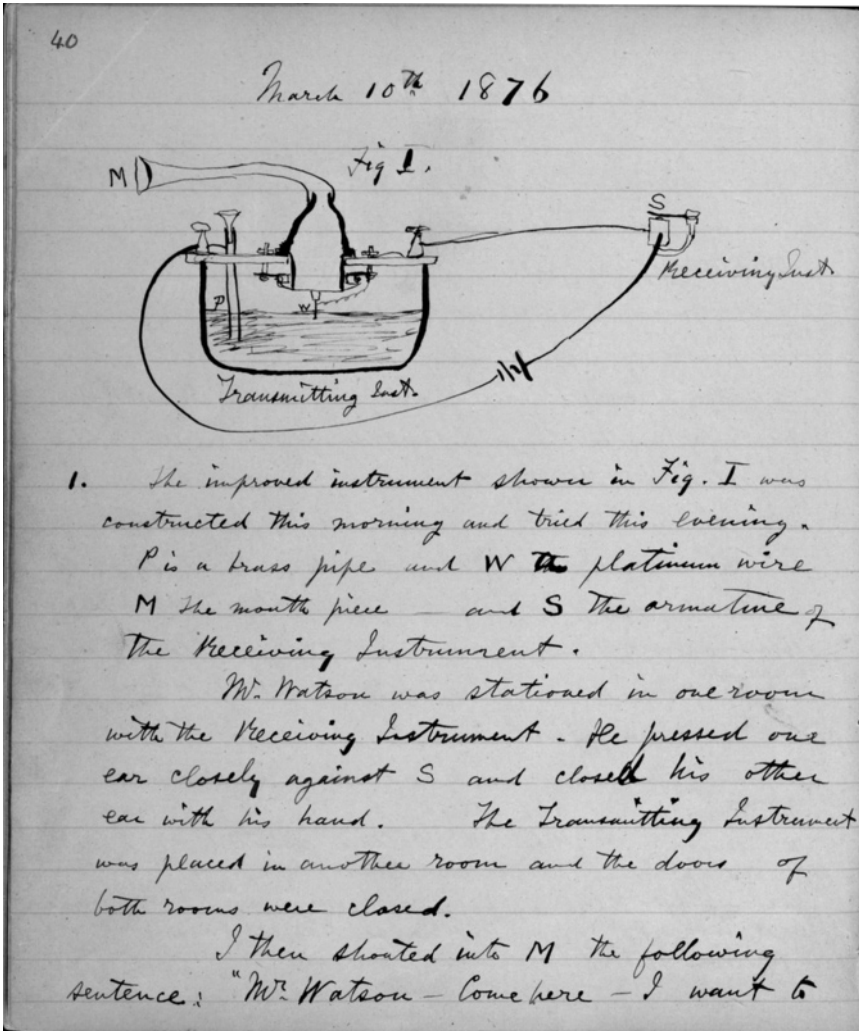 40
March 10th 1876
Fig I.
M
S
Receiving Inst.
P
W
Transmitting Inst.
1. The improved instrument shown in Fig. I was
constructed this morning and tried this evening.
P is a brass pipe and W the platinum wire
M the mouth piece — and S the armature of
the Receiving Instrument.
Mr. Watson was stationed in one room
with the Receiving Instrument. He pressed one
ear closely against S and closed his other
ear with his hand. The Transmitting Instrument
was placed in another room and the doors of
both rooms were closed.
I then shouted into M the following
sentence: "Mr. Watson – Come here – I want to